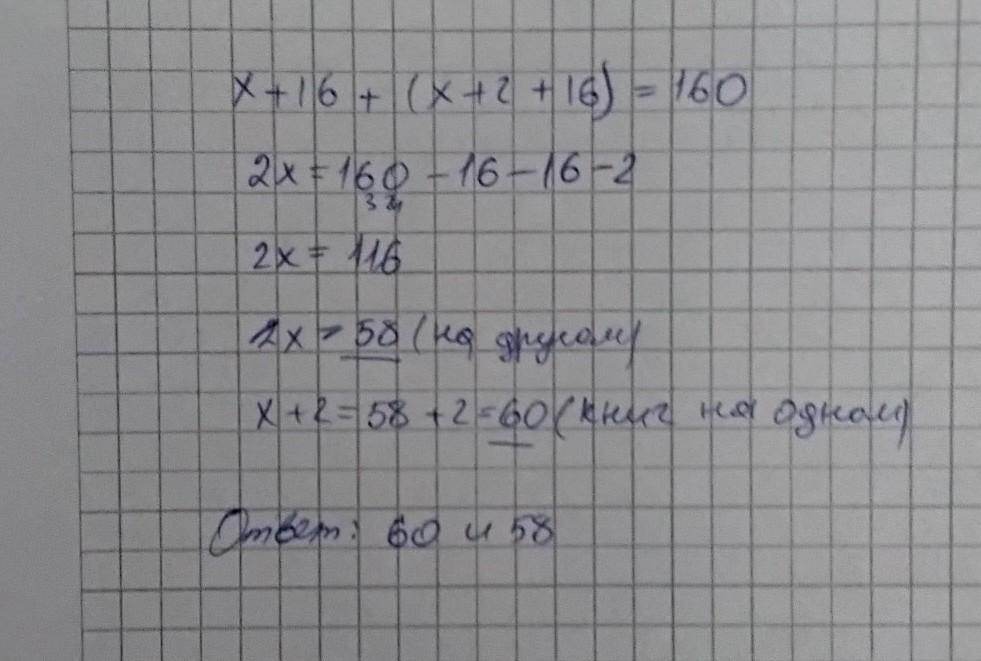 x+16 + (x+2+16) = 160
2x = 160 - 16 - 16 - 2
2x = 116
x = 58 (на другом)
x+2 = 58+2 = 60 (книг на одном)
Ответ: 60 и 58